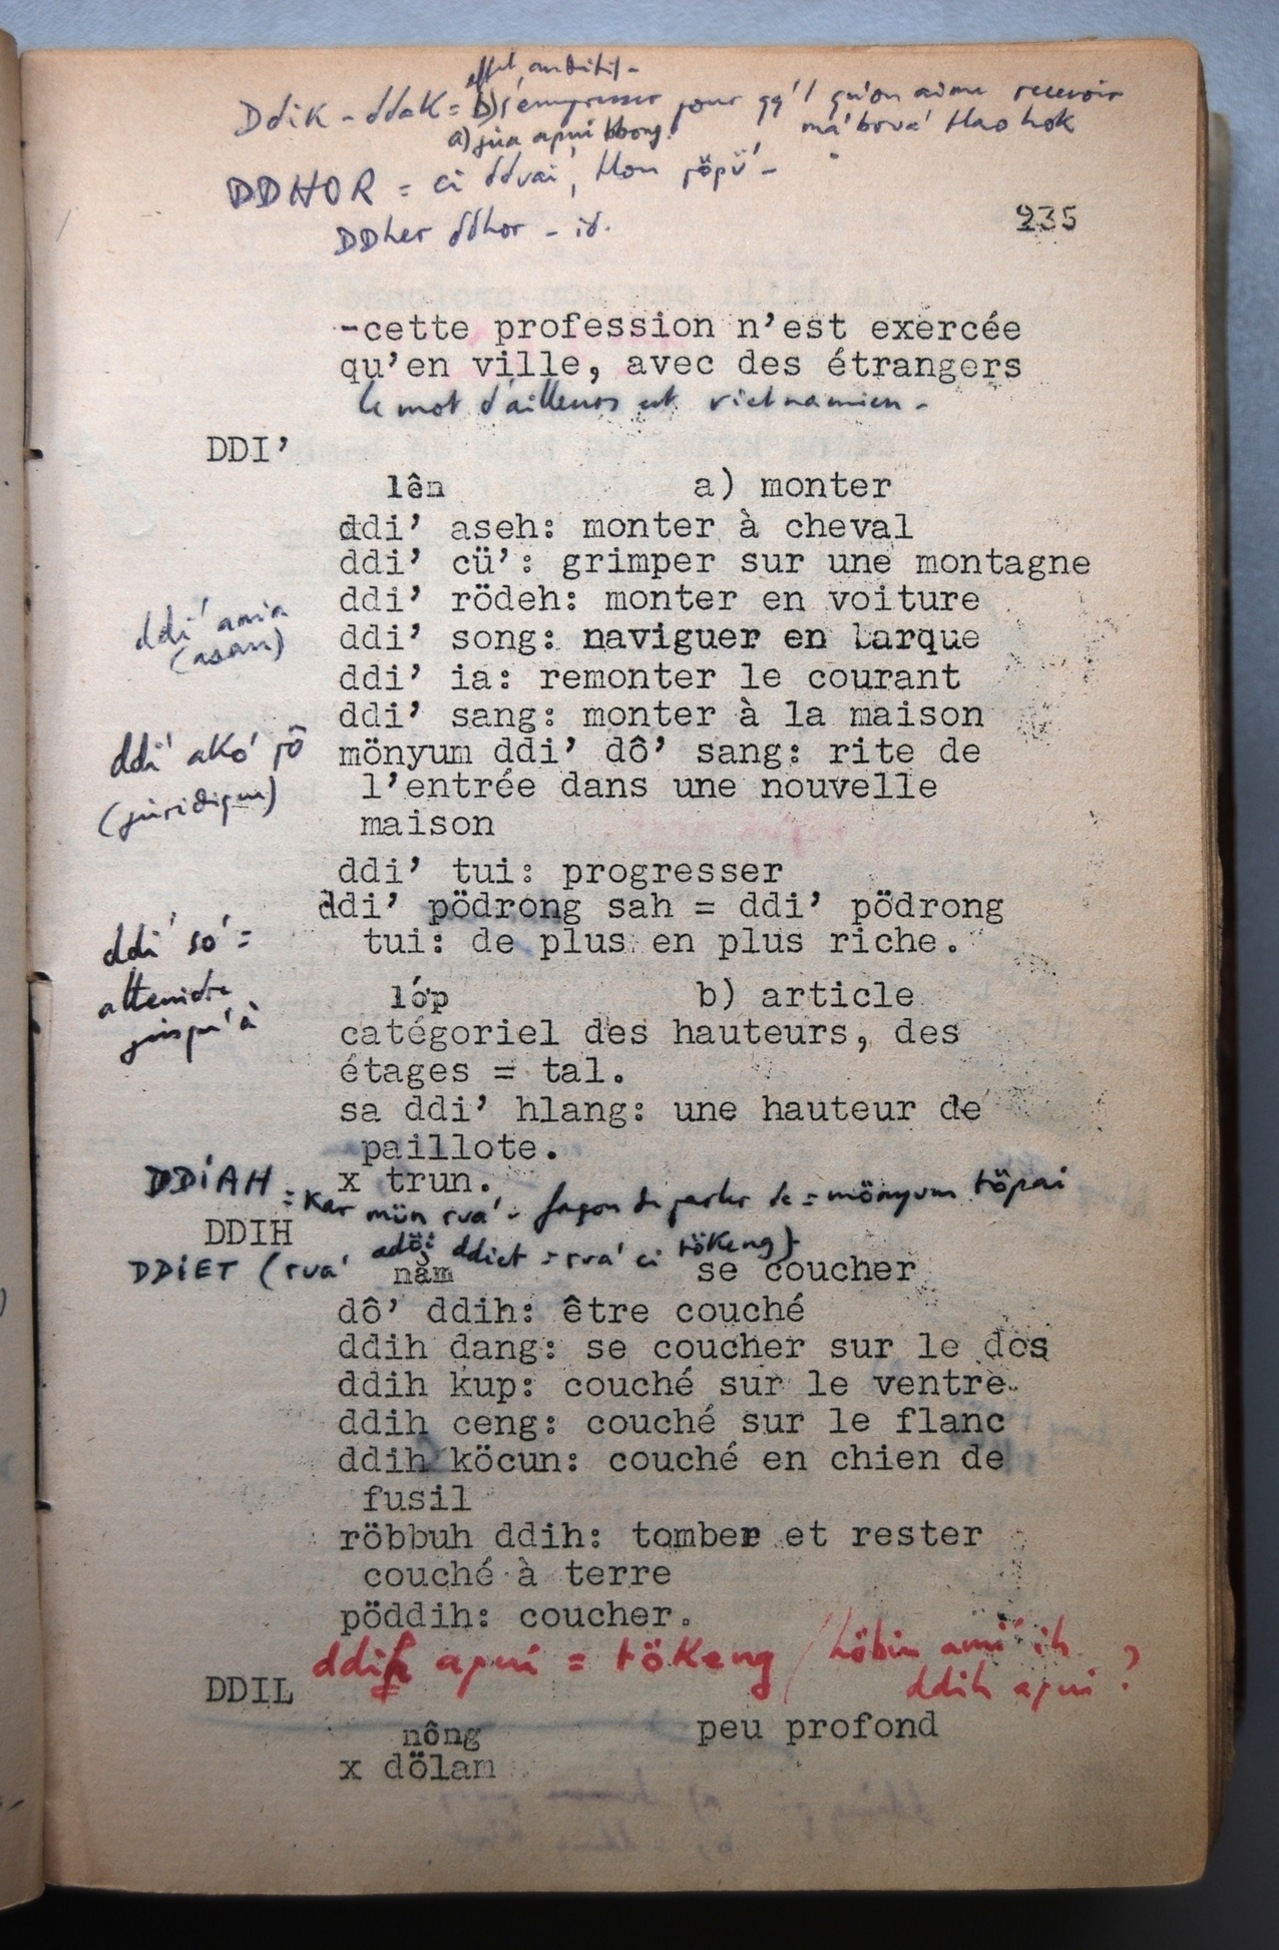 effet auditif -
Ddik - ddak = b) s'empresser pour qq'1 qu'on aime recevoir
a) jua apui bbong. ma' brua' tlao hok
DDHOR = ci dduai', tlon röpü' -
DDher ddhor - id.
235
-cette profession n'est exercée
qu'en ville, avec des étrangers
le mot d'ailleurs est vietnamien -
DDI'
lên a) monter
ddi' aseh: monter à cheval
ddi' cü': grimper sur une montagne
ddi' rödeh: monter en voiture
ddi' amia
(asan)
ddi' song: naviguer en barque
ddi' ia: remonter le courant
ddi' sang: monter à la maison
ddi' akó' rô
(juridique)
mönyum ddi' dô' sang: rite de
l'entrée dans une nouvelle
maison
ddi' tui: progresser
ddi' pödrong sah = ddi' pödrong
tui: de plus en plus riche.
ddi' so' =
atteindre
jusqu'à
lóp b) article
catégoriel des hauteurs, des
étages = tal.
sa ddi' hlang: une hauteur de
paillote.
x trun.
DDIAH = kar mün rua' - façon de parler de = mönyum töpai
DDIH
DDIET (rua' adöi ddiet = rua' ci tökeng)
nằm se coucher
dô' ddih: être couché
ddih dang: se coucher sur le dos
ddih kup: couché sur le ventre.
ddih ceng: couché sur le flanc
ddih köcun: couché en chien de
fusil
röbbuh ddih: tomber et rester
couché à terre
pöddih: coucher.
ddih apui = tökeng / höbin ami' ih
ddih apui ?
DDIL
nông peu profond
x dölam